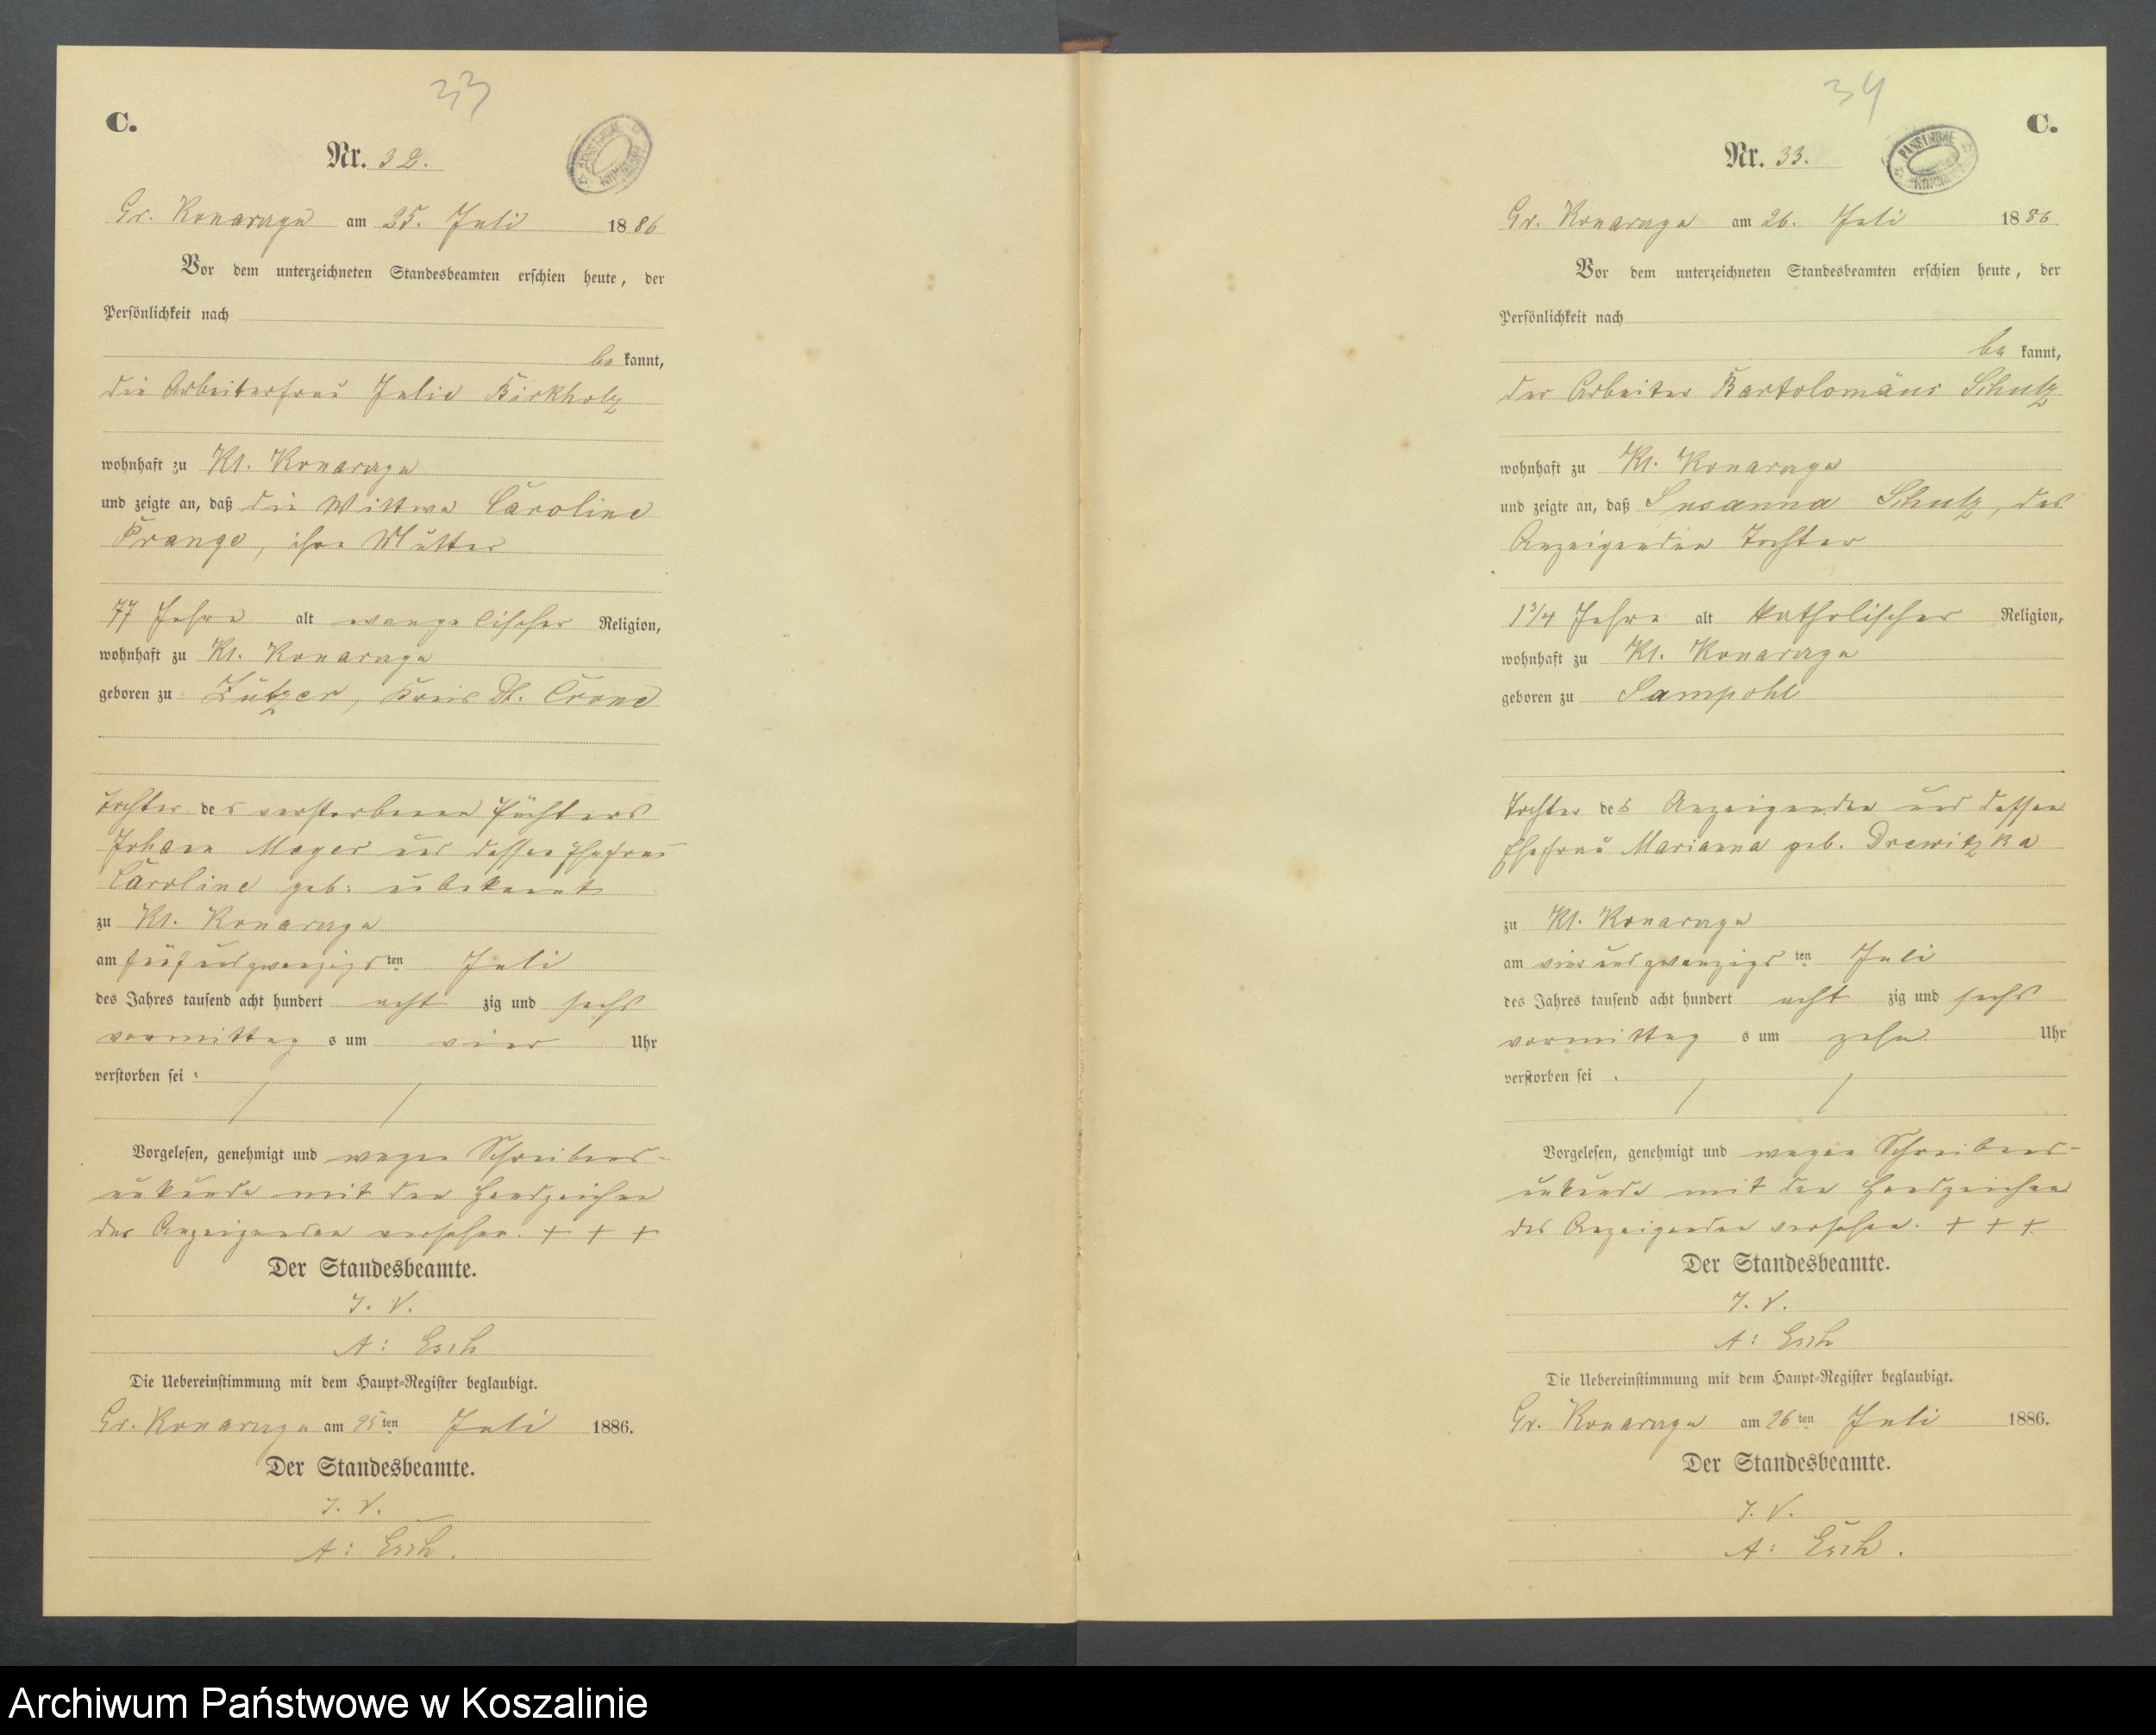 33
C.
Nr. 32.
Gr. Konarzyn am 25. Juli 1886
Vor dem unterzeichneten Standesbeamten erschien heute, der
Persönlichkeit nach
be kannt,
die Arbeiterfrau Julie Birkholz
wohnhaft zu Kl. Konarzyn
und zeigte an, daß die Wittwe Caroline
Prange, ihre Mutter
77 Jahre alt evangelischer Religion,
wohnhaft zu Kl. Konarzyn
geboren zu Lützer, Kreis Dt. Crone
Tochter des verstorbenen Pächters
Johann Mager und dessen Ehefrau
Caroline geb: unbekannt
zu Kl. Konarzyn
am fünf und zwanzigsten Juli
des Jahres tausend acht hundert acht zig und sechs
vormittag s um vier Uhr
verstorben sei.
Vorgelesen, genehmigt und wegen Schreibens-
unkunde mit den Handzeichen
der Anzeigenden versehen. + + +
Der Standesbeamte.
I. V.
A: Esch
Die Uebereinstimmung mit dem Haupt-Register beglaubigt.
Gr. Konarzyn am 25ten Juli 1886.
Der Standesbeamte.
I. V.
A: Esch.
34
C.
Nr. 33.
PAŃSTWOWE
Gr. Konarzyn am 26. Juli 1886
Vor dem unterzeichneten Standesbeamten erschien heute, der
Persönlichkeit nach
be kannt,
der Arbeiter Bartolomäus Schulz
wohnhaft zu Kl. Konarzyn
und zeigte an, daß Susanna Schulz, des
Anzeigenden Tochter
1 3/4 Jahre alt katholischer Religion,
wohnhaft zu Kl. Konarzyn
geboren zu Sampohl
Tochter des Anzeigenden und dessen
Ehefrau Marianna geb. Drewitzka
zu Kl. Konarzyn
am vier und zwanzigsten Juli
des Jahres tausend acht hundert acht zig und sechs
vormittag s um zehn Uhr
verstorben sei.
Vorgelesen, genehmigt und wegen Schreibens-
unkunde mit den Handzeichen
des Anzeigenden versehen. + + +
Der Standesbeamte.
I. V.
A: Esch
Die Uebereinstimmung mit dem Haupt-Register beglaubigt.
Gr. Konarzyn am 26ten Juli 1886.
Der Standesbeamte.
I. V.
A: Esch.
Archiwum Państwowe w Koszalinie